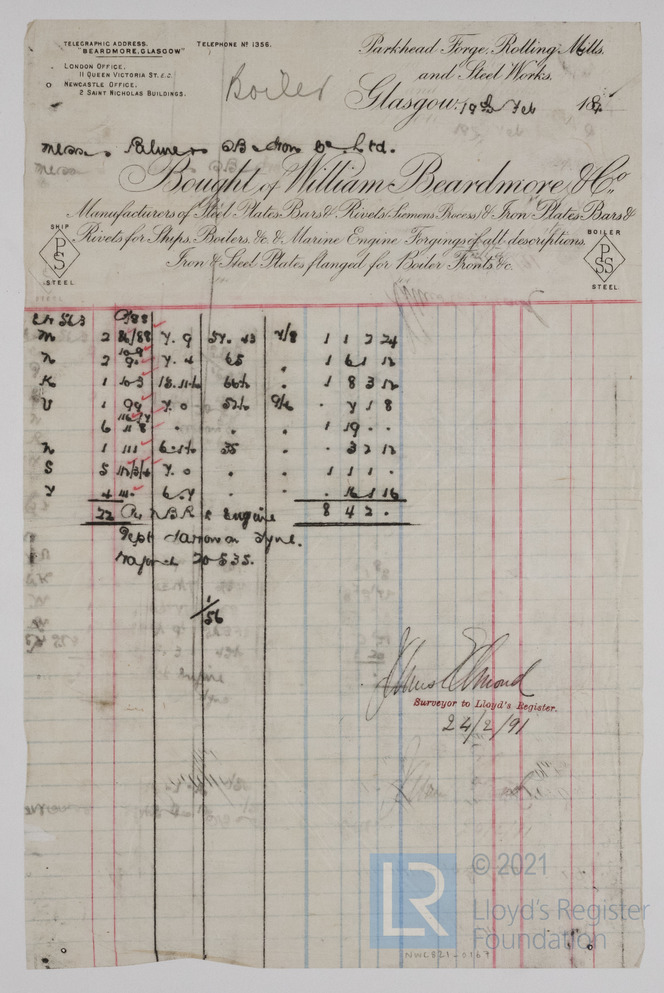 TELEGRAPHIC ADDRESS.
"BEARDMORE, GLASGOW"
TELEPHONE Nº 1356.
LONDON OFFICE.
11 QUEEN VICTORIA ST. E.C.
NEWCASTLE OFFICE.
2 SAINT NICHOLAS BUILDINGS.
Boiler
Parkhead Forge, Rolling Mills,
and Steel Works.
Glasgow, 19th Feb 18
Messrs Palmers SB & Iron Co. Ltd.
Bought of William Beardmore & Co.
Manufacturers of Steel Plates Bars & Rivets (Siemens Process) & Iron Plates Bars &
Rivets for Ships, Boilers, &c. & Marine Engine Forgings of all descriptions.
Iron & Steel Plates flanged for Boiler Fronts &c.
SHIP
PS
STEEL
BOILER
PSS
STEEL.
563 88
M 2 86/88 7.9 43 7/8 1 1 2 24
N 2 7.4 65 " 1 6 1 12
K 1 103 " 1 8 3 12
U 1 99 7.0 . 7 1 8
6 118 . . . 19 . .
N 1 111 55 . . 3 2 12
S 5 7.0 . . 1 1 1 .
Y 4 111 . . . 16 1 16
22 Per NBR & Engine 8 4 2 .
Dept Jarrow on Tyne.
Wagon 20535.
1/56
Surveyor to Lloyd's Register.
24/2/91
LR
© 2021
Lloyd's Register
Foundation
NWC821-0167